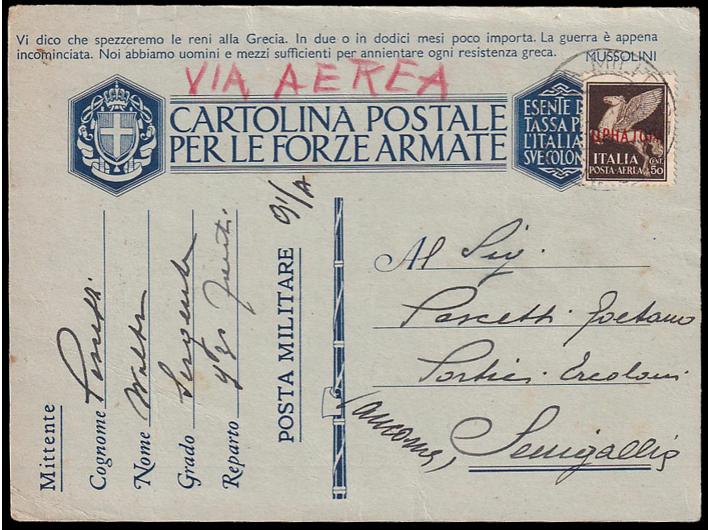 Vi dico che spezzeremo le reni alla Grecia. In due o in dodici mesi poco importa. La guerra è appena
incominciata. Noi abbiamo uomini e mezzi sufficienti per annientare ogni resistenza greca. MUSSOLINI
VIA AEREA
CARTOLINA POSTALE
PER LE FORZE ARMATE
ESENTE D
TASSA P
L'ITALIA
SVE COLON
ITALIA
POSTA-AEREA CENT. 50
Mittente
Cognome
Nome Walter
Grado Sergente
Reparto
POSTA MILITARE 91/A
Al Sig.
Pascetti Gaetano
Portici Ercolani
(ancona) Senigallia